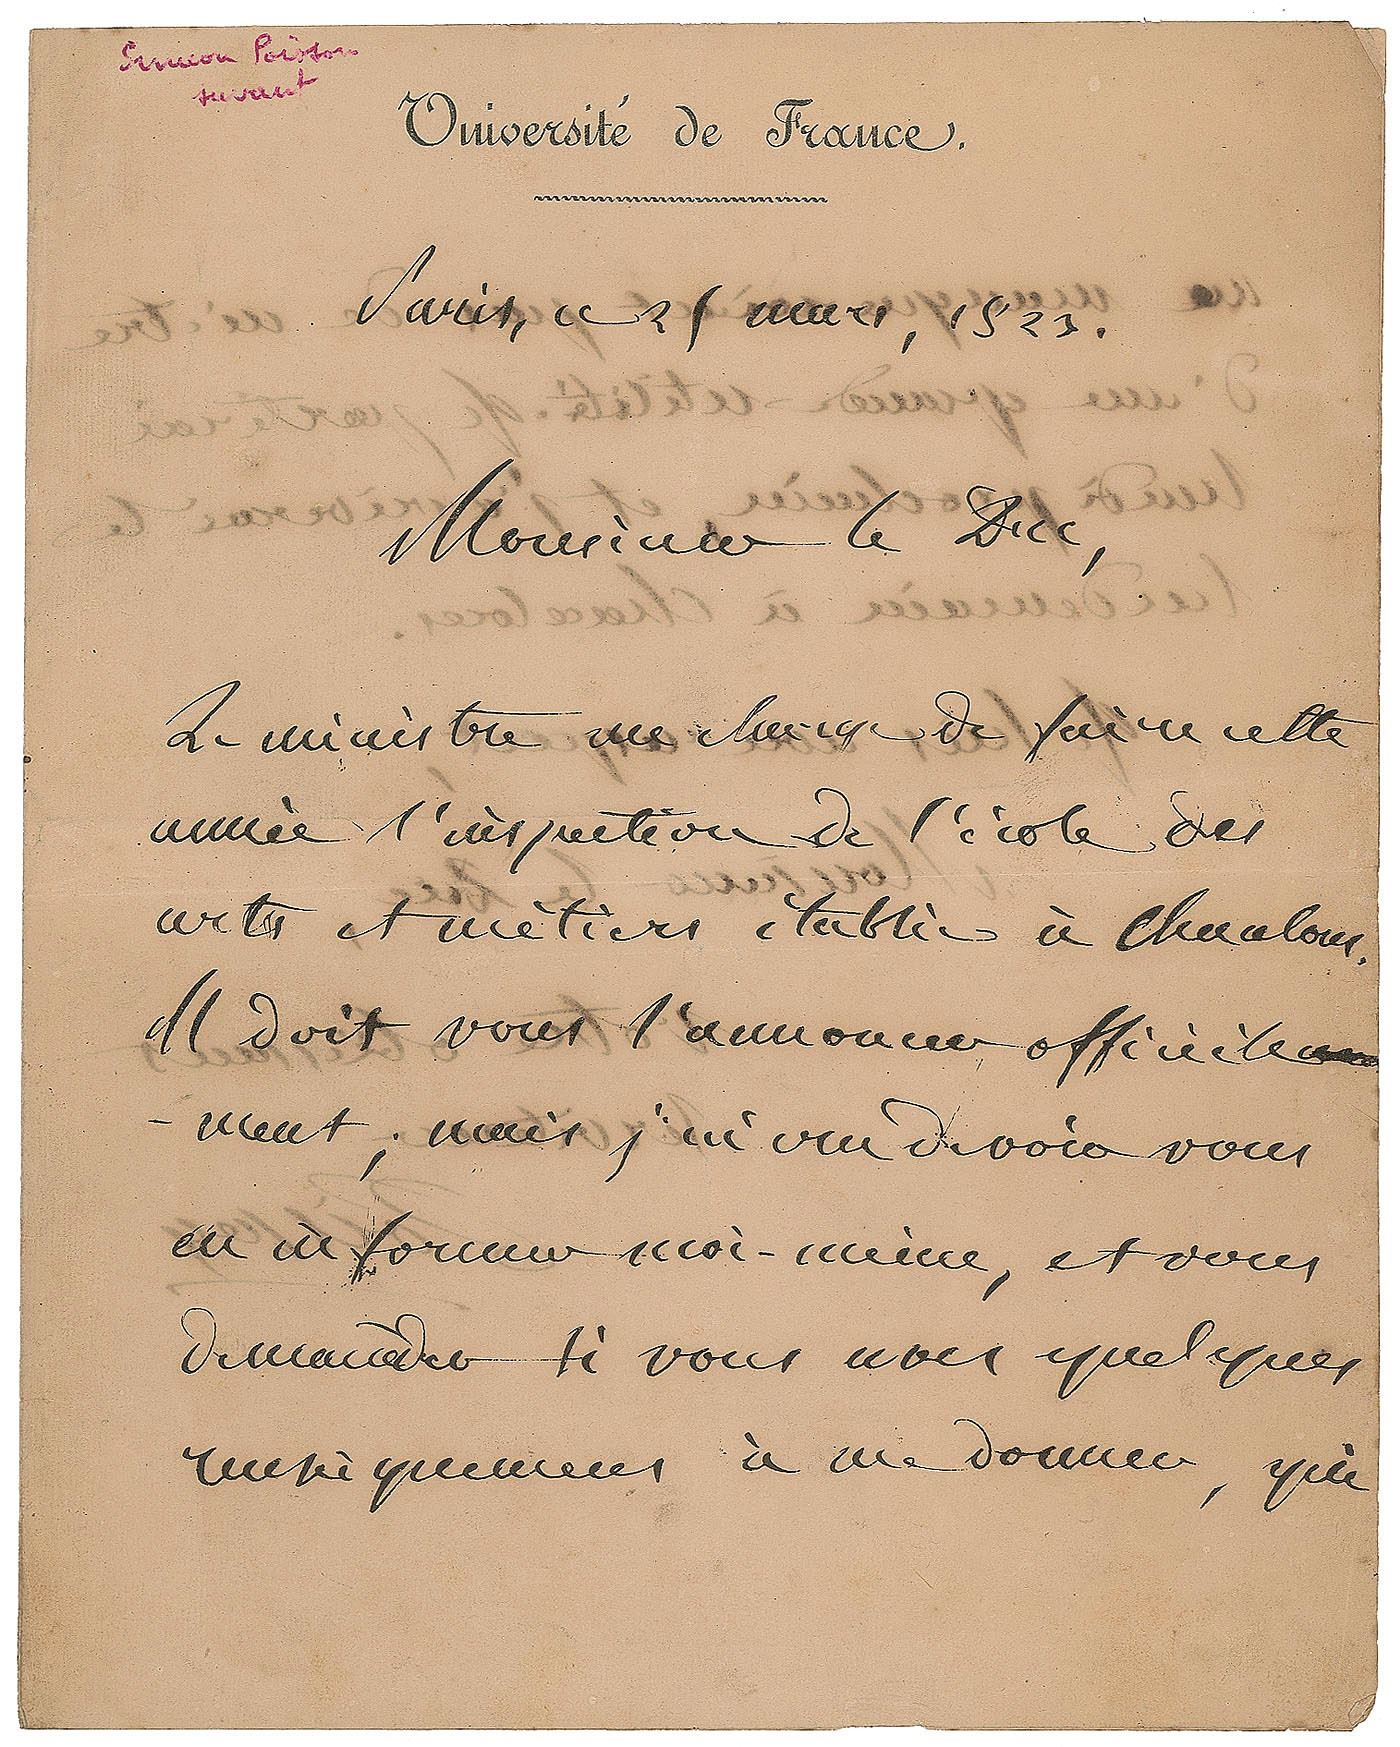 Simeon Poisson
savant
Université de France.
Paris, ce 25 mars, 1823.
Monsieur le Duc,
Le ministre me charge de faire cette
année l'inspection de l'école des
arts et métiers établie à Chaalons.
Il doit vous l'annoncer officielle
-ment ; mais j'ai cru devoir vous
en informer moi-même, et vous
demander si vous avez quelques
renseignemens à me donner, qui